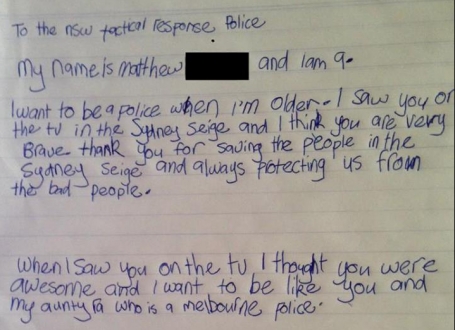 To the nsw tactical response Police
My name is matthew and I am 9.
I want to be a police when I'm older. I saw you on
the tv in the Sydney Seige and I think you are very
Brave thank you for saving the people in the
Sydney Seige and always protecting us from
the bad people.
When I saw you on the tv I thought you were
awesome and I want to be like you and
my aunty Fa who is a melbourne police.